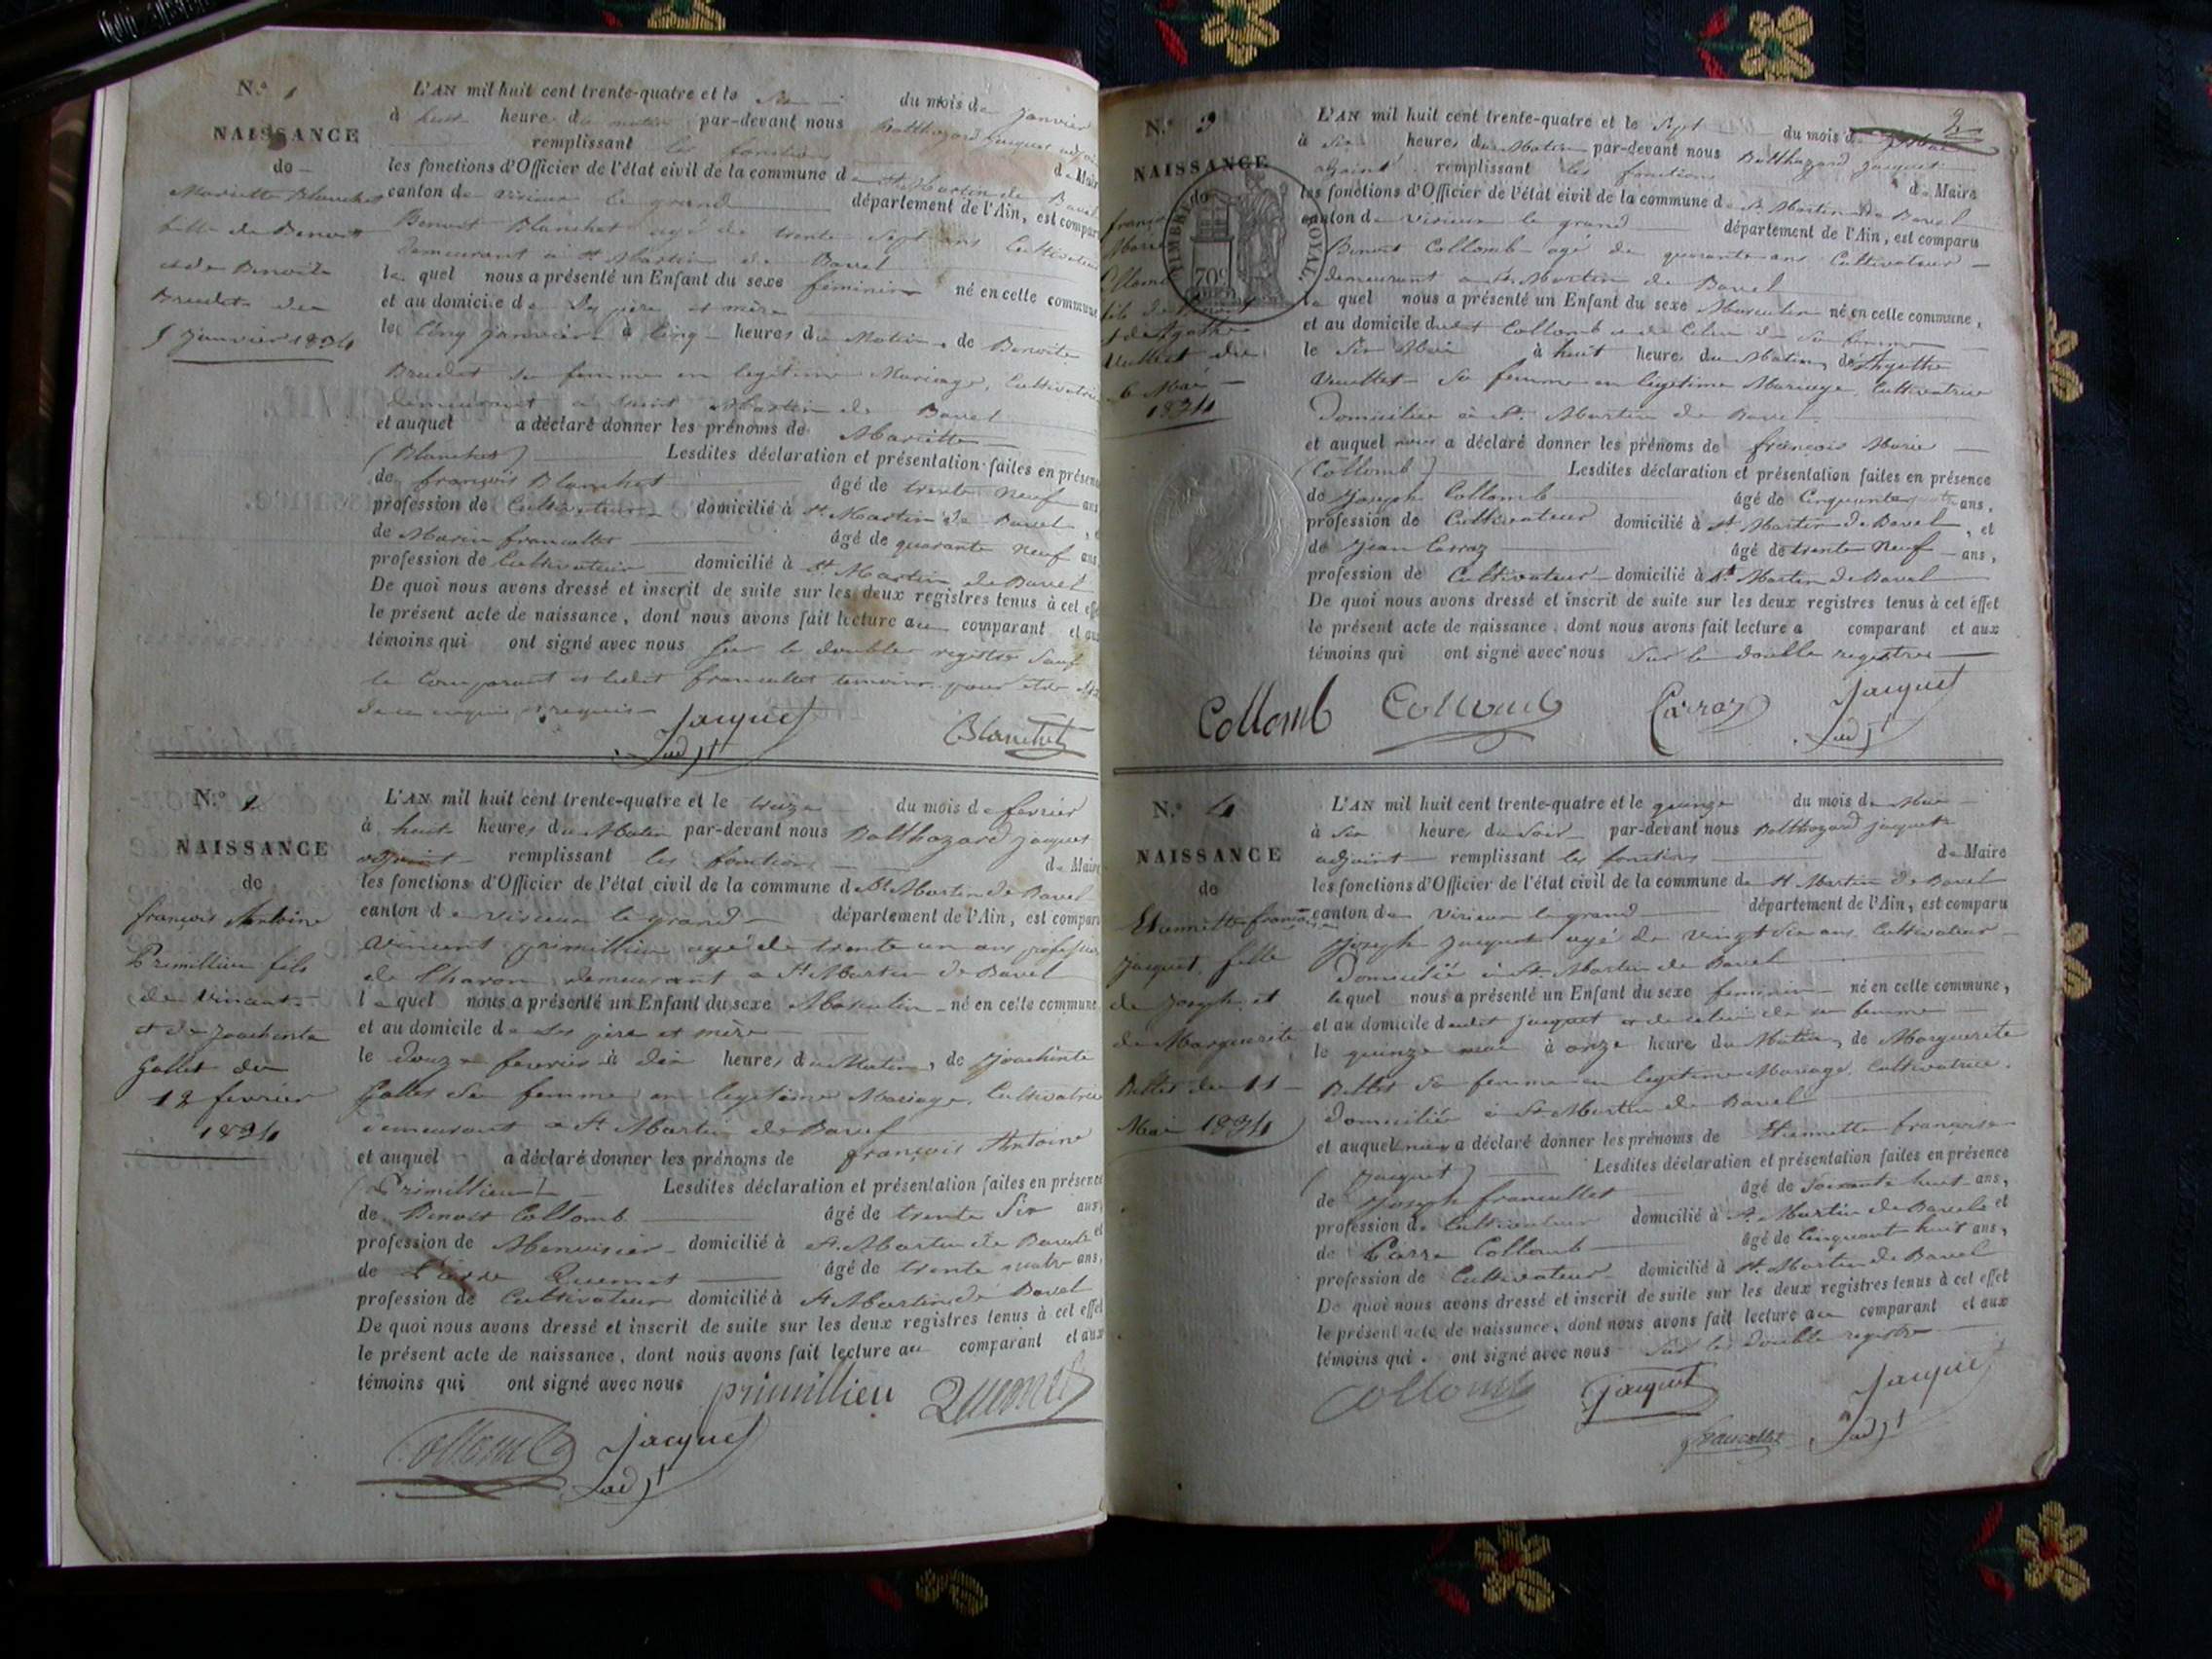 N.° 1
NAISSANCE
de
Mariette Blanchet
fille de Benoit
et de Benoite
Brudet du
5 janvier 1834
L'AN mil huit cent trente-quatre et le Six du mois de janvier
à huit heures du matin par-devant nous Balthazard Jacquet adjoint
remplissant les fonctions de Maire
les fonctions d'Officier de l'état civil de la commune de St Martin de Bavel
canton de Virieu le grand département de l'Ain, est comparu
Benoit Blanchet agé de trente Sept ans Cultivateur
demeurant à St Martin de Bavel
le quel nous a présenté un Enfant du sexe féminin né en cette commune
et au domicile de Ses père et mère
le Cinq janvier à Cinq heures du Matin, de Benoite
Brudet sa femme en legitime Mariage, Cultivatrice
demeurant a Saint Martin de Bavel
et auquel a déclaré donner les prénoms de Mariette
(Blanchet) Lesdites déclaration et présentation faites en présence
de françois Blanchet âgé de trente Neuf ans
profession de Cultivateur domicilié à St Martin de Bavel, et
de Marin francallet âgé de quarante Neuf ans
profession de Cultivateur domicilié à St Martin de Bavel
De quoi nous avons dressé et inscrit de suite sur les deux registres tenus à cet effet
le présent acte de naissance, dont nous avons fait lecture au comparant et aux
témoins qui ont signé avec nous Sur le double registre Sauf
le Comparant et ledit francallet temoins pour
de ce enquis et requis
Jacquet
adjt
Blanchet
N.° 2
NAISSANCE
de
françois Antoine
Primillieu fils
de Vincent
et de Joachinte
Gallet du
12 fevrier
1834
L'AN mil huit cent trente-quatre et le treize du mois de fevrier
à huit heures du Matin par-devant nous Balthazard Jacquet
adjoint remplissant les fonctions de Maire
les fonctions d'Officier de l'état civil de la commune de St Martin de Bavel
canton de Virieu le grand département de l'Ain, est comparu
Vincent primillieu agé de trente un ans profession
de Charon demeurant a St Martin de Bavel
le quel nous a présenté un Enfant du sexe Masculin né en cette commune
et au domicile de Ses père et mère
le douze fevrier à dix heures du Matin, de Joachinte
Gallet Sa femme en legitime Mariage, Cultivatrice
demeurant a St Martin de Bavel
et auquel a déclaré donner les prénoms de françois Antoine
(Primillieu) Lesdites déclaration et présentation faites en présence
de Benoit Collomb âgé de trente Six ans,
profession de Menuisier domicilié à St Martin de Bavel et
de Pierre Quemet âgé de trente quatre ans,
profession de Cultivateur domicilié à St Martin de Bavel
De quoi nous avons dressé et inscrit de suite sur les deux registres tenus à cet effet
le présent acte de naissance, dont nous avons fait lecture au comparant et aux
témoins qui ont signé avec nous primillieu Quemet
Collomb Jacquet
adjt
2
N.° 3
NAISSANCE
de
TIMBRE ROYAL.
70c
françois
Marie
Collomb
fils de Benoit
et de Agathe
Vuillet du
6 Mai
1834
L'AN mil huit cent trente-quatre et le Sept du mois de Mai
à Six heures du Matin par-devant nous Balthazard Jacquet
adjoint remplissant les fonctions de Maire
les fonctions d'Officier de l'état civil de la commune de St Martin de Bavel
canton de Virieu le grand département de l'Ain, est comparu
Benoit Collomb agé de quarante ans Cultivateur
demeurant a St Martin de Bavel
le quel nous a présenté un Enfant du sexe Masculin né en cette commune,
et au domicile dudit Collomb et de Celui de Sa femme
le Six Mai à huit heures du Matin, de Agathe
Vuillet Sa femme en legitime Mariage, Cultivatrice
Domiciliée à St Martin de Bavel
et auquel nous a déclaré donner les prénoms de françois Marie
(Collomb) Lesdites déclaration et présentation faites en présence
de Joseph Collomb âgé de Cinquante ans,
profession de Cultivateur domicilié à St Martin de Bavel, et
de Jean Carraz âgé de trente Neuf ans,
profession de Cultivateur domicilié à St Martin de Bavel
De quoi nous avons dressé et inscrit de suite sur les deux registres tenus à cet effet
le présent acte de naissance, dont nous avons fait lecture a comparant et aux
témoins qui ont signé avec nous Sur le double registre
Collomb Collomb Carraz Jacquet
adjt
N.° 4
NAISSANCE
de
Etiennette françoise
Jacquet, fille
de Joseph et
de Marguerite
Billet du 11
Mai 1834
L'AN mil huit cent trente-quatre et le quinze du mois de Mai
à Six heures du Soir par-devant nous Balthazard Jacquet
adjoint remplissant les fonctions de Maire
les fonctions d'Officier de l'état civil de la commune de St Martin de Bavel
canton de Virieu le grand département de l'Ain, est comparu
Joseph Jacquet agé de Vingt Six ans Cultivateur
Domicilié à St Martin de Bavel
le quel nous a présenté un Enfant du sexe feminin né en cette commune,
et au domicile dudit Jacquet et de celui de sa femme
le quinze mai à onze heures du Matin, de Marguerite
Billet Sa femme en legitime Mariage, Cultivatrice,
Domiciliée à St Martin de Bavel
et auquel nous a déclaré donner les prénoms de Etiennette françoise
(Jacquet) Lesdites déclaration et présentation faites en présence
de Joseph francallet âgé de Soixante huit ans,
profession de Cultivateur domicilié à St Martin de Bavel et
de Pierre Collomb âgé de Cinquante huit ans,
profession de Cultivateur domicilié à St Martin de Bavel
De quoi nous avons dressé et inscrit de suite sur les deux registres tenus à cet effet
le présent acte de naissance, dont nous avons fait lecture au comparant et aux
témoins qui ont signé avec nous Sur le double registre
Collomb Jacquet Jacquet
francallet adjt